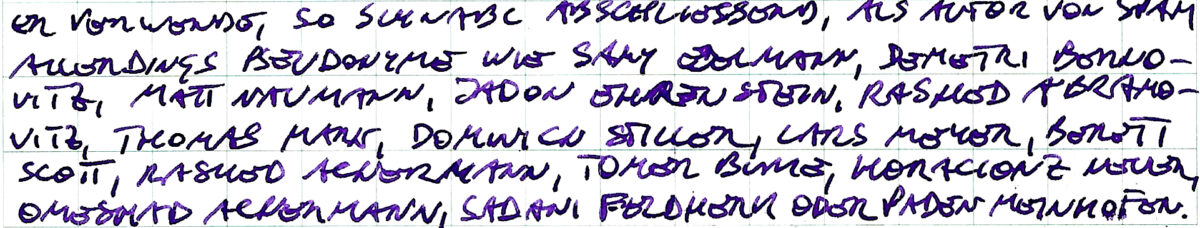 ER VERWENDE, SO SCHNABL ABSCHLIESSEND, ALS AUTOR VON SPAM
ALLERDINGS PSEUDONYME WIE SAMY EDELMANN, DEMETRI BERNO-
VITZ, MATT NAUMANN, JADON EHRENSTEIN, RASHED ABRAMO-
VITZ, THOMAS MANN, DOMINICH STILLER, LARS MEYER, BERETT
SCOTT, RASHED ACKERMANN, TOMER BLUME, HORACIONZ KELLER,
OMESHAD ACKERMANN, SADANI FELDHERR ODER PADEN MEINHOFEN.